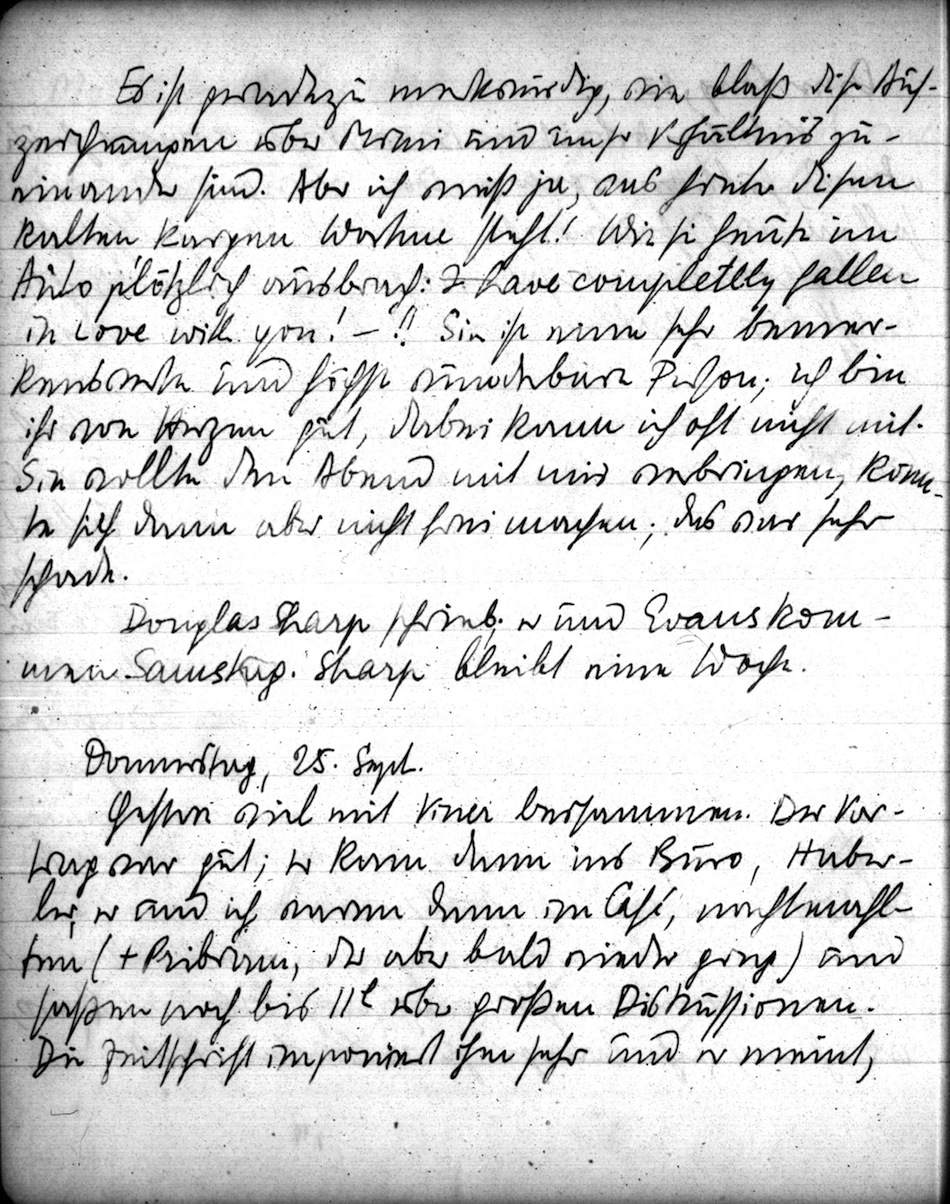 Es ist geradezu merkwürdig, wie blaß diese Auf-
zeichnungen über Mimi und unser Verhältnis zu-
einander sind. Aber ich weiß ja, was hinter diesen
kalten kargen Worten steht! Wie sie heute im
Auto plötzlich ausbrach: I have completelly fallen
in Love with you! – !! Sie ist eine sehr bemer-
kenswerte und höchst wunderbare Person; ich bin
ihr von Herzen gut, dabei kann ich oft nicht mit.
Sie wollte den Abend mit mir verbringen, konn-
te sich dann aber nicht frei machen; das war sehr
schade.
Douglas Sharp schrieb. er und Evans kom-
men Samstag. Sharp bleibt eine Woche.
Donnerstag, 25. Sept.
Gestern viel mit Viner beisammen. Der Vor-
trag war gut; er kam dann ins Büro, Haber-
ler, er und ich waren dann im Café, nachtmahl-
ten (+ Pribram, der aber bald wieder ging) und
saßen noch bis 11h über großen Diskussionen.
Die Zeitschrift imponiert ihm sehr und er meint,